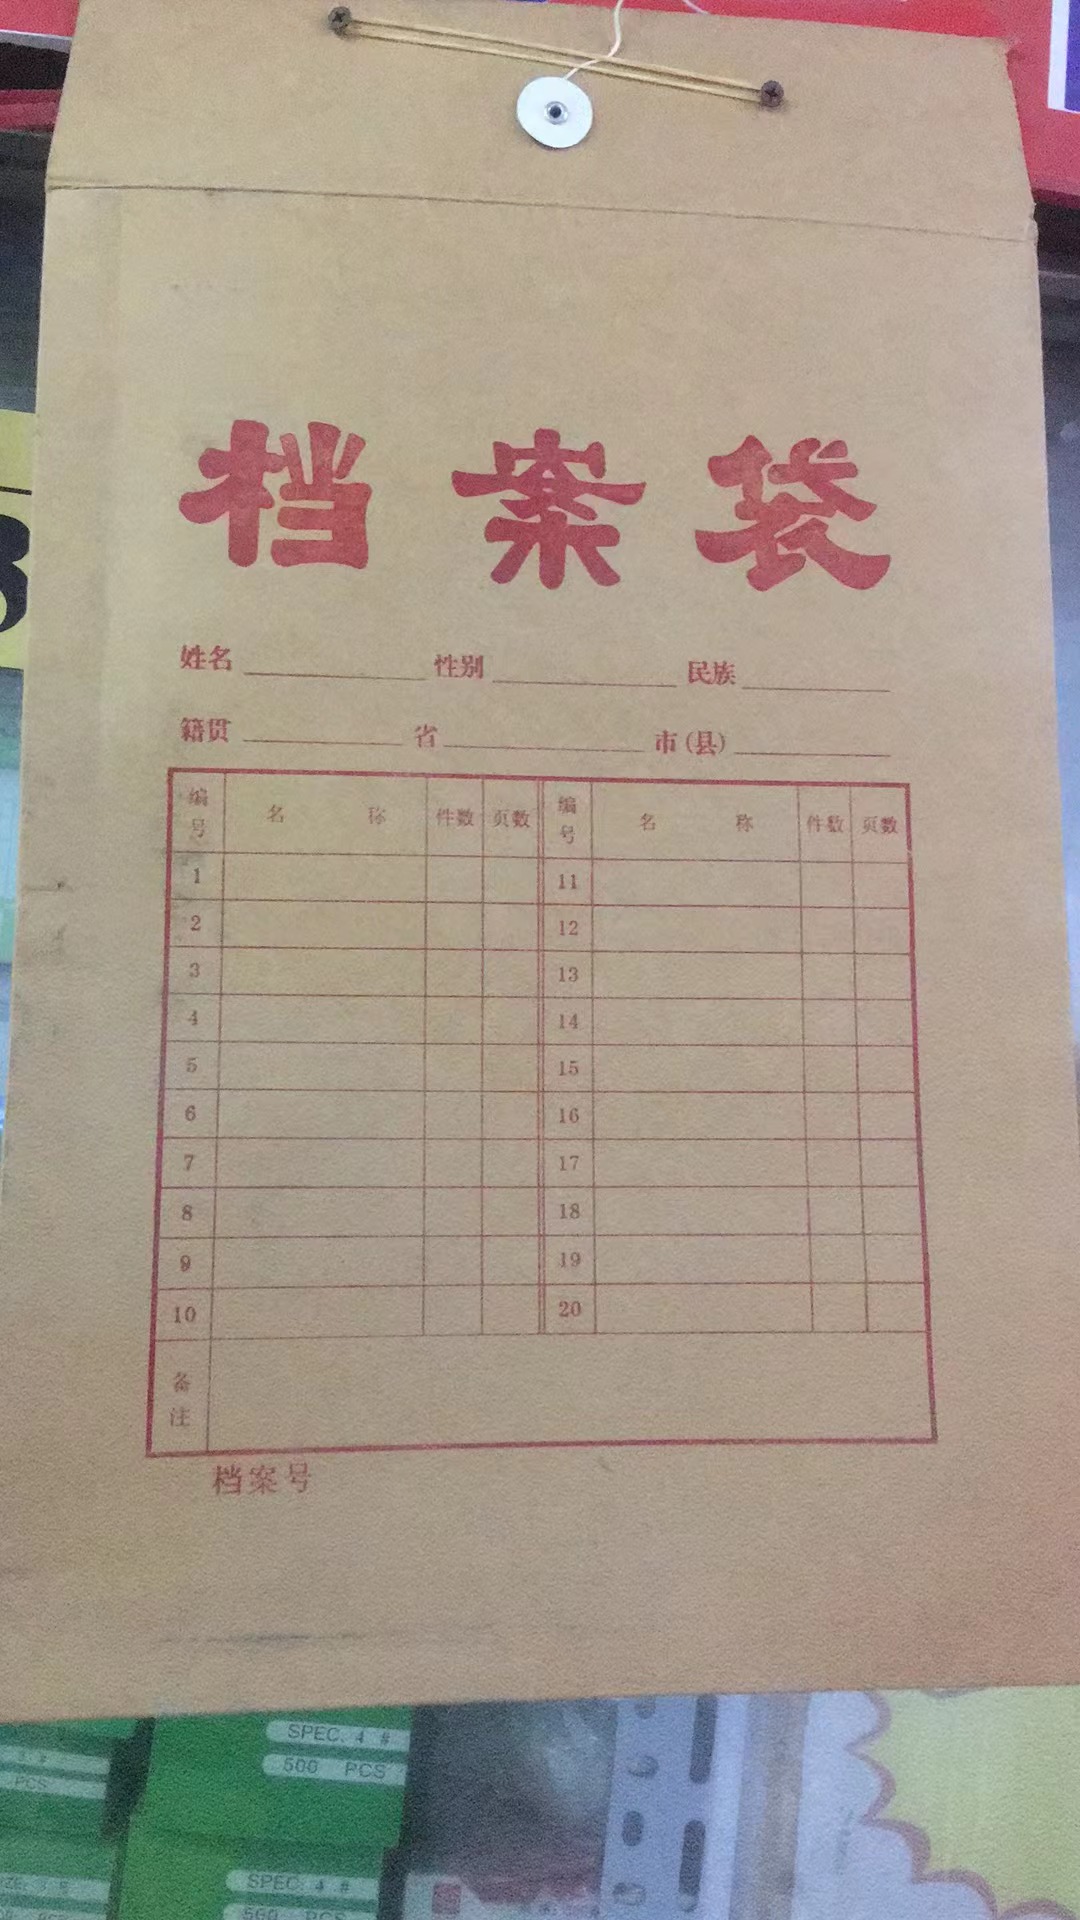 档案袋
姓名 性别 民族
籍贯 省 市(县)
编号 名称 件数 页数 编号 名称 件数 页数
1 11
2 12
3 13
4 14
5 15
6 16
7 17
8 18
9 19
10 20
备注
档案号
SPEC. 4 #
500 PCS
3 #
PCS
SPEC. 4 #
500 PCS